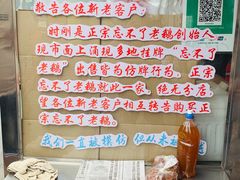 敬告各位新老客户:
时刚是正宗忘不了老鹅创始人
现市面上涌现多地挂牌“忘不了
老鹅”出售皆为仿牌行为,正宗
忘不了老鹅就此一家,绝无分店。
望各位新老客户相互转告购买正
宗忘不了老鹅。
我们一直被模仿 但从未